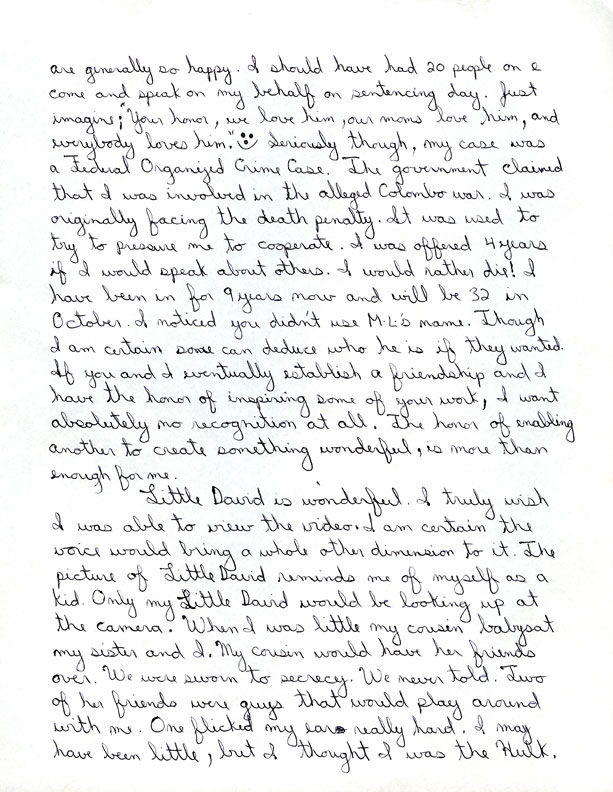 are generally so happy. I should have had 20 people on
come and speak on my behalf on sentencing day. Just
imagine; "Your honor, we love him, our moms love him, and
everybody loves him." Seriously though, my case was
a Federal Organized Crime Case. The government claimed
that I was involved in the alleged Colombo war. I was
originally facing the death penalty. It was used to
try to pressure me to cooperate. I was offered 4 years
if I would speak about others. I would rather die! I
have been in for 9 years now and will be 32 in
October. I noticed you didn't use M.L.'s name. Though
I am certain some can deduce who he is if they wanted.
If you and I eventually establish a friendship and I
have the honor of inspiring some of your work, I want
absolutely no recognition at all. The honor of enabling
another to create something wonderful, is more than
enough for me.
Little David is wonderful. I truly wish
I was able to view the video. I am certain the
voice would bring a whole other dimension to it. The
picture of Little David reminds me of myself as a
kid. Only my Little David would be looking up at
the camera. When I was little my cousin babysat
my sister and I. My cousin would have her friends
over. We were sworn to secrecy. We never told. Two
of her friends were guys that would play around
with me. One flicked my ear really hard. I may
have been little, but I thought I was the Hulk.